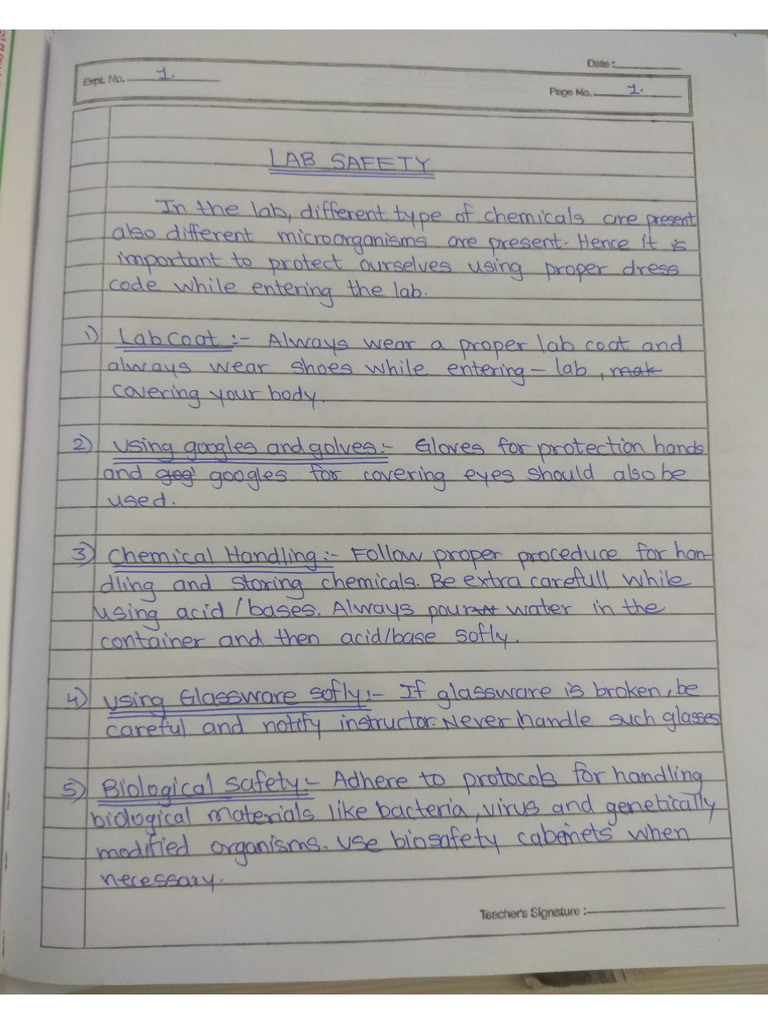 Date :
Expt. No. 1.
Page No. 1.
LAB SAFETY
In the lab, different type of chemicals are present
also different microorganisms are present. Hence it is
important to protect ourselves using proper dress
code while entering the lab.
1) Lab Coat :- Always wear a proper lab coat and
always wear shoes while entering - lab, mak
covering your body.
2) Using googles and golves:- Gloves for protection hands
and gog googles for covering eyes should also be
used.
3) Chemical Handling :- Follow proper proceduce for han-
dling and storing chemicals. Be extra carefull while
using acid / bases. Always pour water in the
container and then acid/base sofly.
4) Using Glassware sofly:- If glassware is broken, be
careful and notify instructor. Never handle such glasses
5) Biological safety:- Adhere to protocols for handling
biological materials like bacteria, virus and genetically
modified organisms. Use biosafety cabeinets when
necessary.
Teacher's Signature :